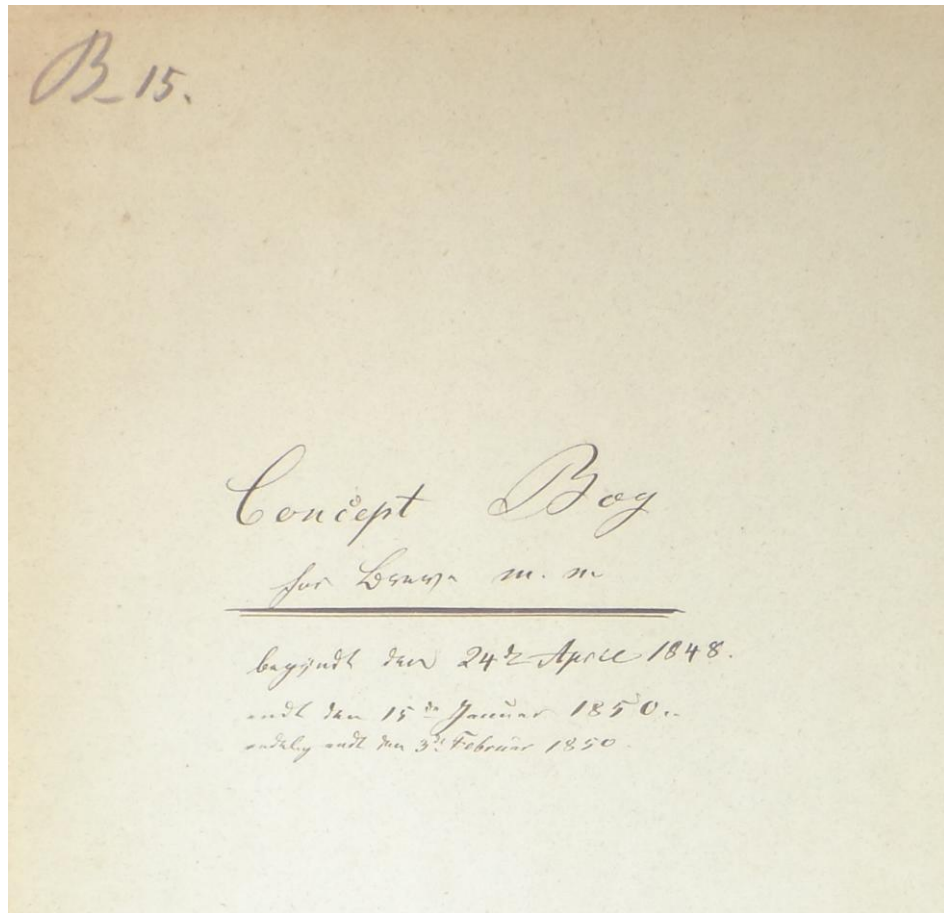 B_15.
Concept Bog
for Breve m. m
begyndt den 24de April 1848.
endt den 15de Januar 1850.
endelig endt den 3de Februar 1850.